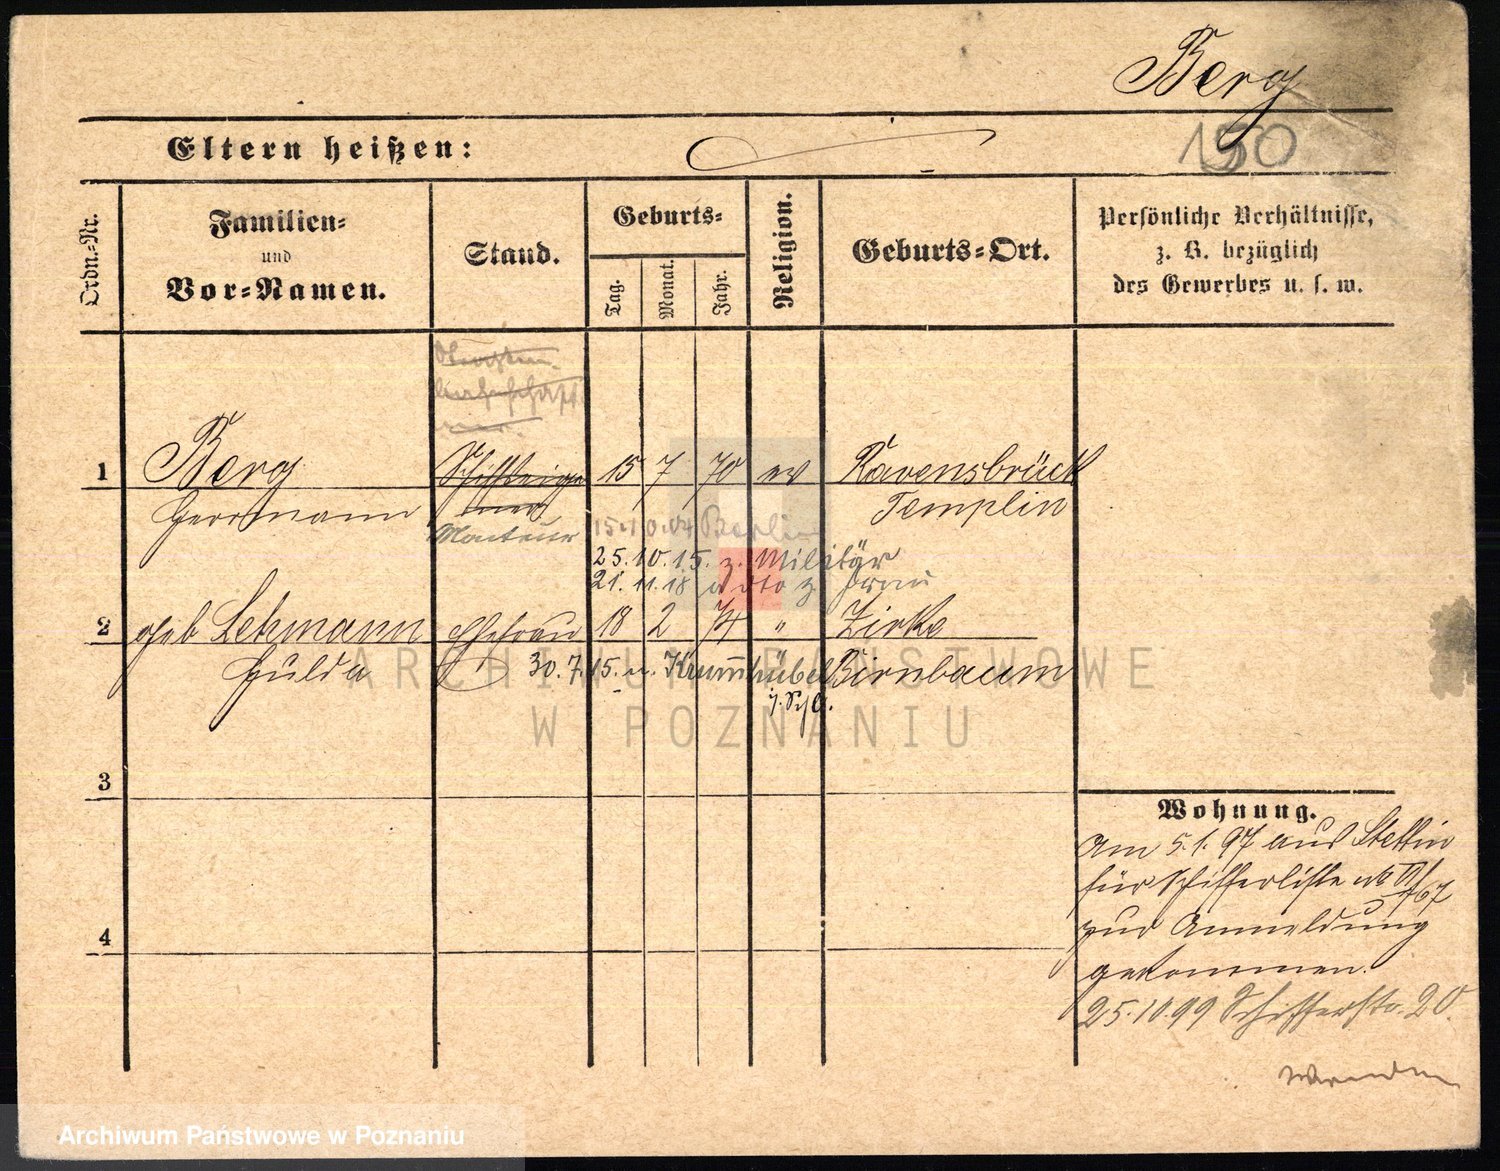 Berg
150
Eltern heißen:
Ordn.-Nr.
Familien-
und
Vor-Namen.
Stand.
Geburts-
Tag.
Monat.
Jahr.
Religion.
Geburts-Ort.
Persönliche Verhältnisse,
z. B. bezüglich
des Gewerbes u. s. w.
1 Berg 15 7 70 ev Ravensbrück
Herrmann Templin
Monteur 15.10.04 Berlin
25.10.15. z. Militär
21.11.18 z. Frau
2 geb Lehmann Ehefrau 18 2 74 " Zirke
Hulda 30.7.15. n. Krummhübel Birnbaum
i. Schl.
3
4
Wohnung.
Am 5.1.97 aus Stettin
für Schifferliste VI/767
zur Anmeldung
gekommen.
25.10.99 Schifferstr. 20.
Wenden
ARCHIWUM PAŃSTWOWE
W POZNANIU
Archiwum Państwowe w Poznaniu